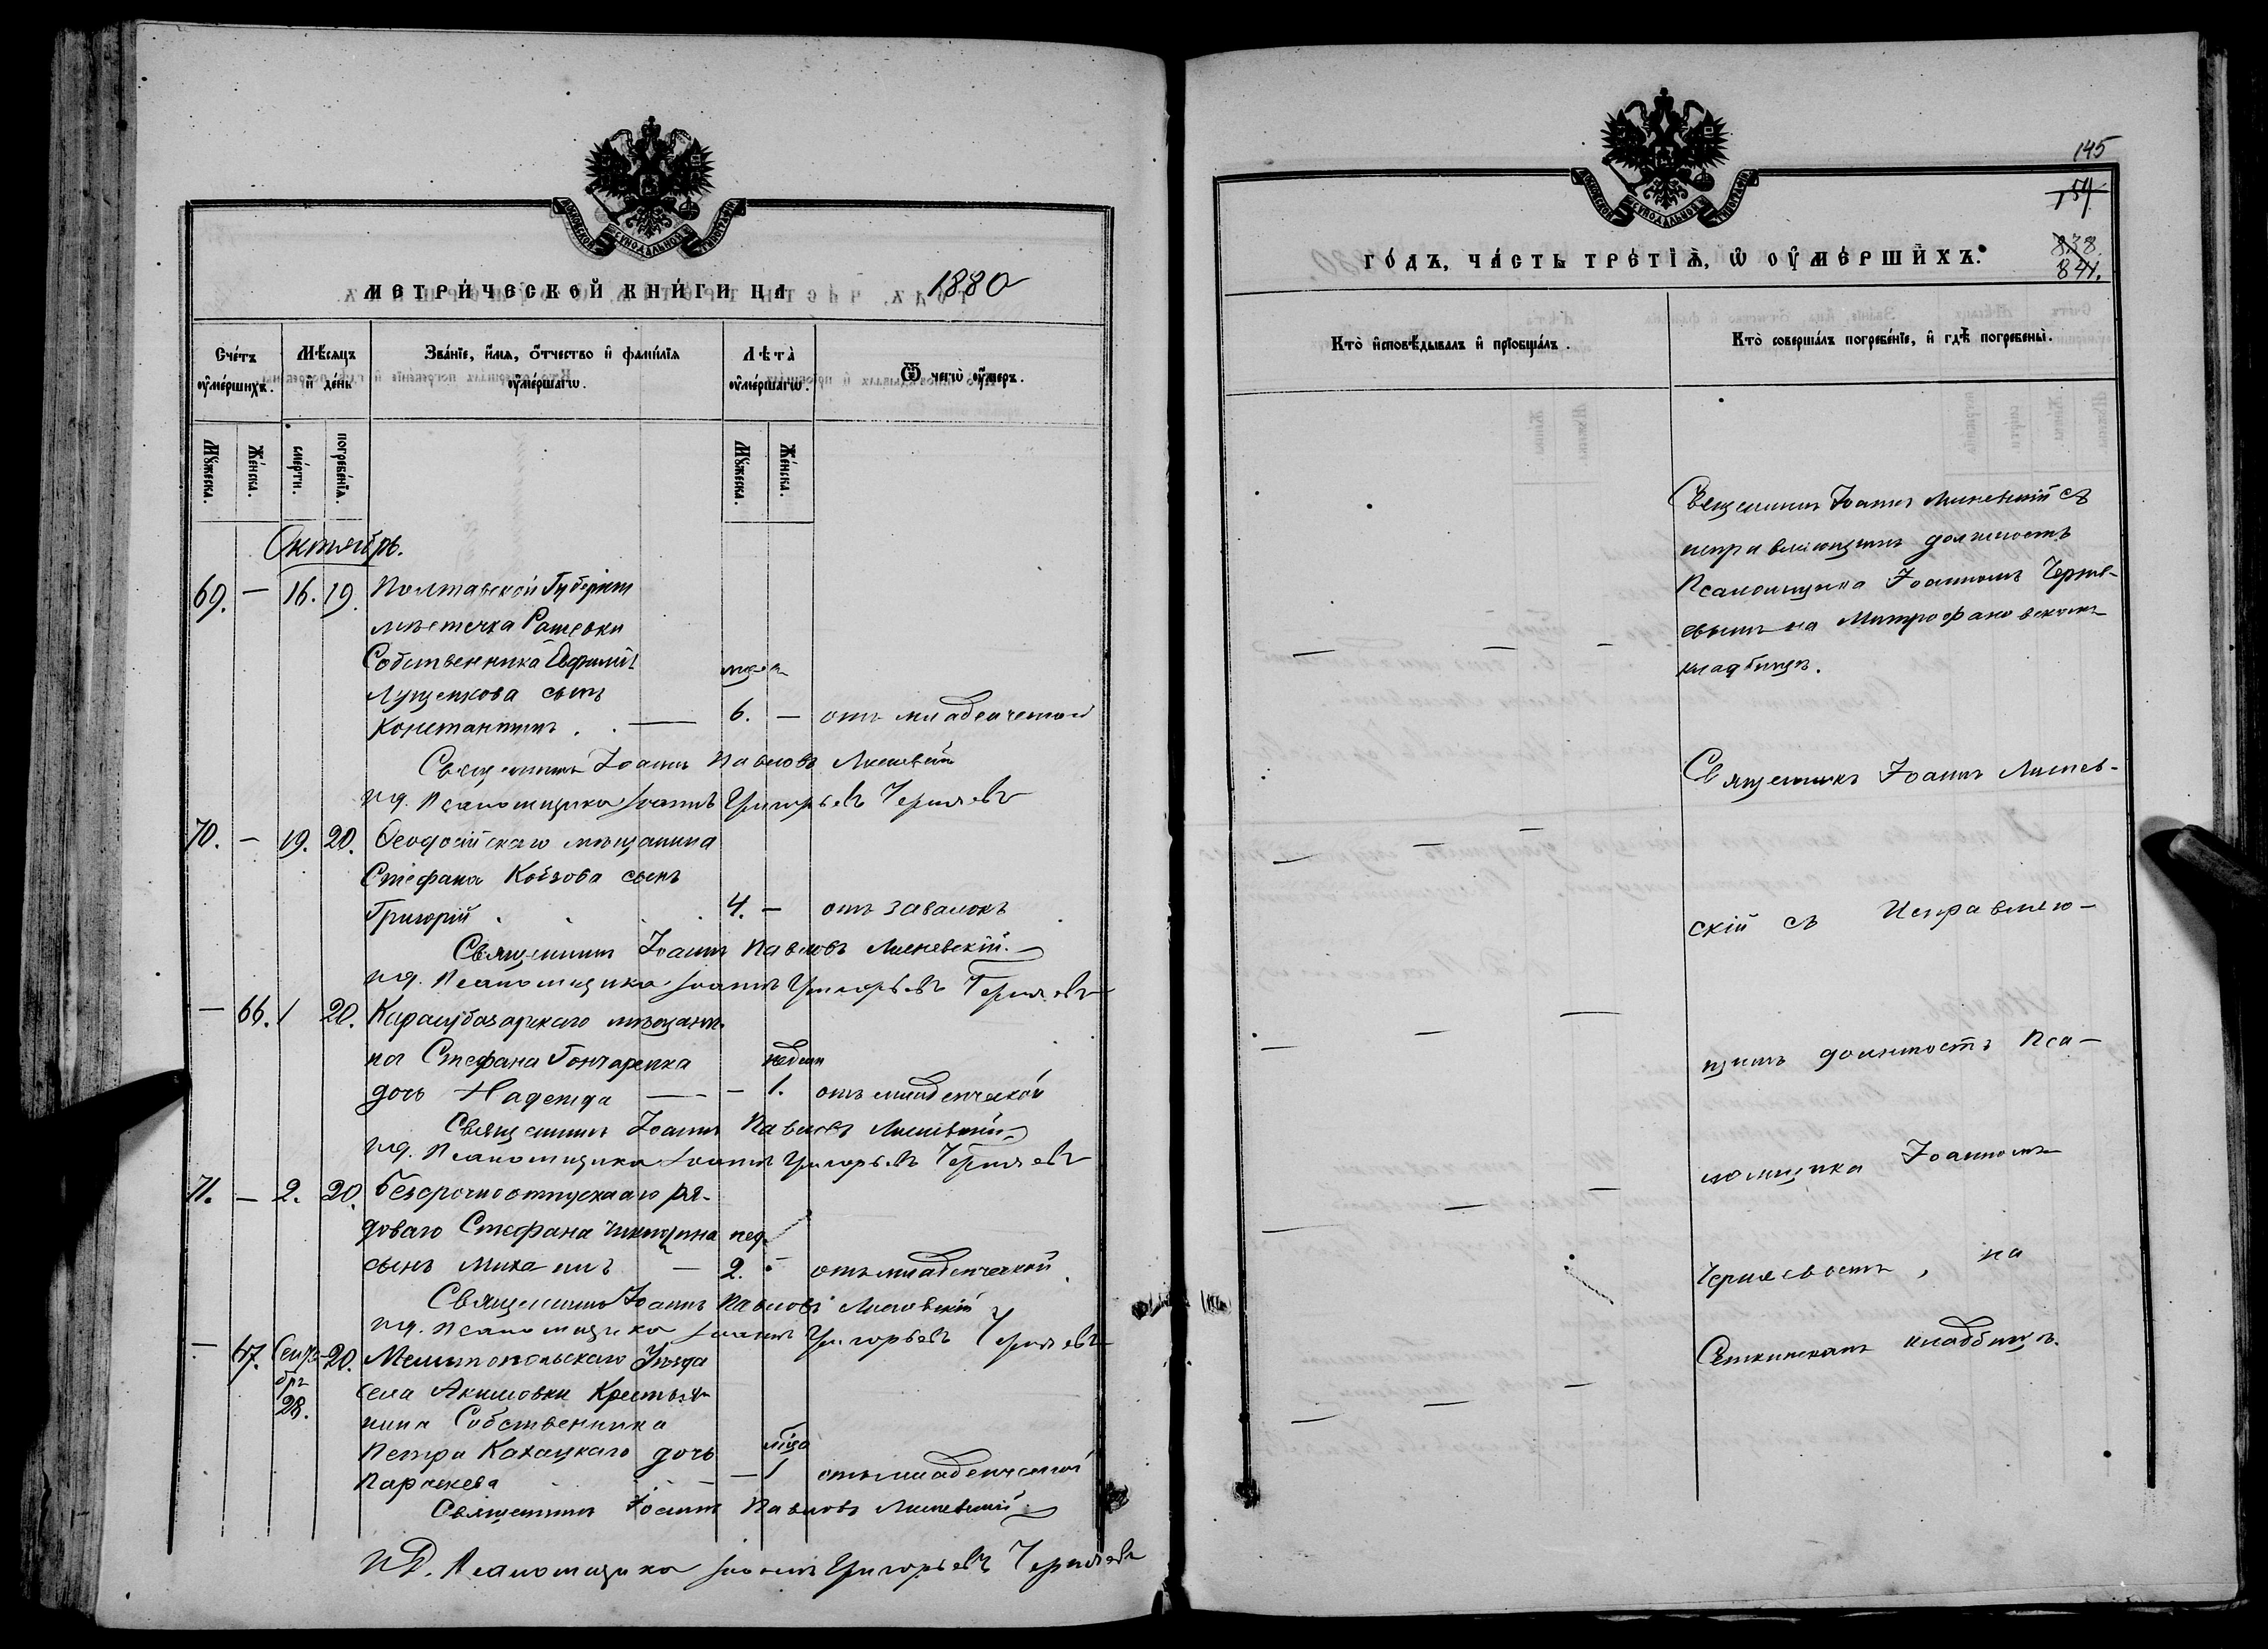 МОСКОВСКОЙ СѴНОДАЛЬНОЙ ТИПОГРАФІИ
МЕТРИ́ЧЕСКОЙ КНИ́ГИ НА 1880
Сче́тъ оу҆ме́ршихъ.
Мѣ́сяцъ и҆ де́нь
Зва́нїе, и҆́мя, ѻ҆́тчество и҆ фами́лїя оу҆ме́ршагѡ.
Лѣта̀ оу҆ме́ршагѡ.
Ѿ чегѡ̀ оу҆́меръ.
Мꙋ́жеска.
Же́нска.
сме́рти.
погребе́нїя.
Мꙋ́жеска.
Же́нска.
Октябрь.
69. — 16. 19. Полтавской Губерніи
мѣстечка Рашевки
Собственника Евфимія
Лущенкова сынъ
Константинъ . . — 6. — отъ младенческой
Священникъ Іоаннъ Павловъ Лисневскій
И.д. Псаломщика Іоаннъ Григорьевъ Чернявъ
70. — 19. 20. Ѳеодосійскаго мѣщанина
Стефана Козова сынъ
Григорій . . . 4. — отъ завалокъ
Священникъ Іоаннъ Павловъ Лисневскій.
И.д. Псаломщика Іоаннъ Григорьевъ Чернявъ
— 66. 1 20. Карасубазарскаго мѣщани-
на Стефана Гончаренка недѣли
дочь Надежда — — 1. отъ младенческой
Священникъ Іоаннъ Павловъ Лисневскій
И.д. Псаломщика Іоаннъ Григорьевъ Чернявъ
71. — 2. 20. Безсрочноотпускнаго ря-
доваго Стефана нед.
сынъ Михаилъ — 2. отъ младенческой
Священникъ Іоаннъ Павловъ Лисневскій
И.д. Псаломщика Іоаннъ Григорьевъ Чернявъ
— 67. Сентя- 20. Мелитопольскаго Уѣзда
брь села Акимовки Крестья-
28. нина Собственника
Петра Кахацкаго дочь мѣсяц
Параскева — 1 отъ младенческой
Священникъ Іоаннъ Павловъ Лисневскій
И.Д. Псаломщика Іоаннъ Григорьевъ Чернявъ
145
154
838.
841.
МОСКОВСКОЙ СѴНОДАЛЬНОЙ ТИПОГРАФІИ
ГО́ДЪ, ЧА́СТЬ ТРЕ́ТЇѦ, Ѡ҆ ОУ҆МЕ́РШИХЪ.
Кто̀ и҆сповѣ́дывалъ и҆ прїобща́лъ.
Кто̀ соверша́лъ погребе́нїе, и҆ гдѣ̀ погребены̀.
Священникъ Іоаннъ Лисневскій съ
исправляющимъ должность
Псаломщика Іоанномъ Черня-
евымъ на Митрофановскомъ
кладбищѣ.
Священникъ Іоаннъ Лиснев-
скій съ Исправляю-
щимъ должность Пса-
ломщика Іоанномъ
Черняевомъ, на
кладбищѣ.